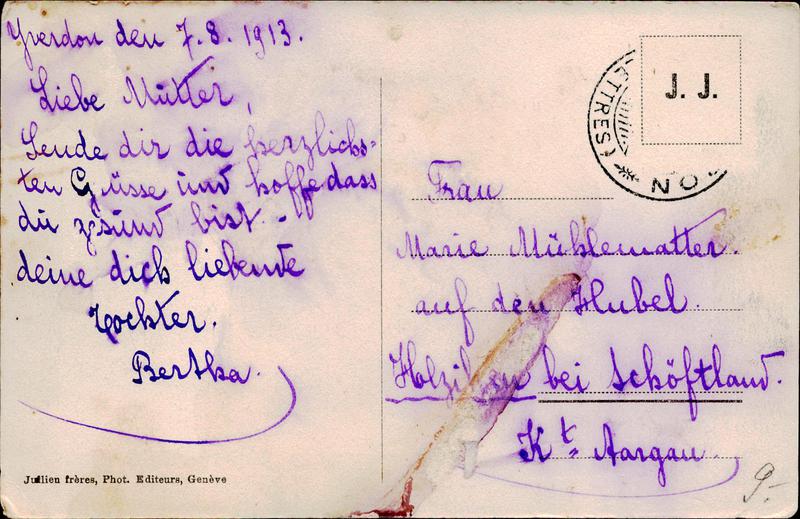 Yverdon den 7.8.1913.
Liebe Mutter,
Sende dir die herzlichs-
ten Grüsse und hoffe dass
du gesund bist. -
deine dich liebende
Tochter.
Bertha.
Jullien frères, Phot. Editeurs, Genève
J. J.
ETTRES)
ON
Frau
Marie Mühlematter.
auf den Hubel.
bei Schöftland.
Kt. Aargau.
9.-